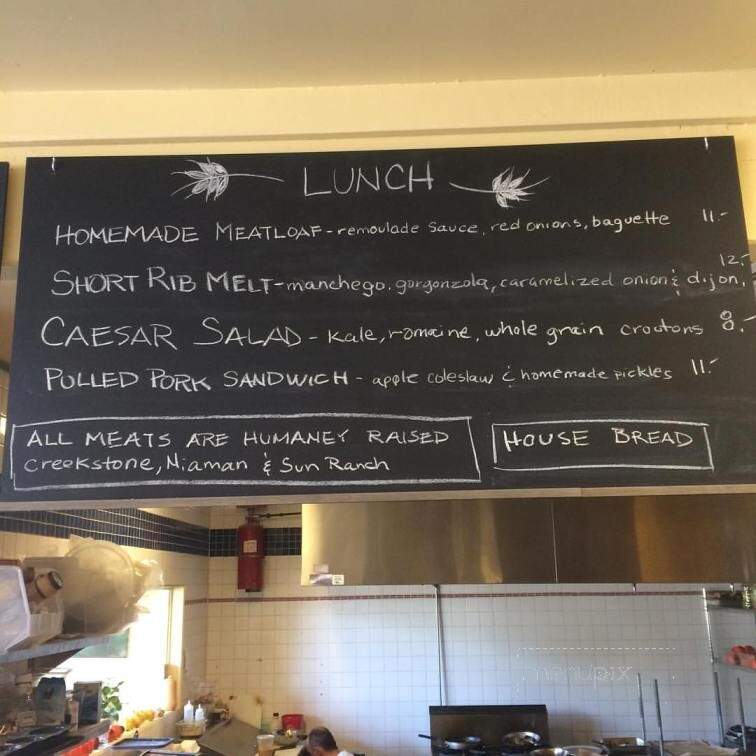 LUNCH
HOMEMADE MEATLOAF - remoulade sauce, red onions, baguette 11.-
SHORT RIB MELT - manchego, gorgonzola, caramelized onion & dijon, 12.-
CAESAR SALAD - kale, romaine, whole grain croutons 8.-
PULLED PORK SANDWICH - apple coleslaw & homemade pickles 11.-
ALL MEATS ARE HUMANEY RAISED
Creekstone, Niaman & Sun Ranch
HOUSE BREAD
menupix